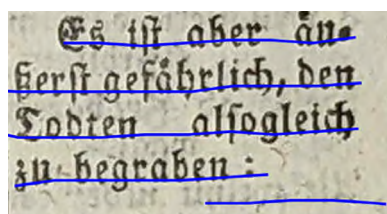 Es iſt aber äu⸗
ßerſt gefährlich, den
Todten alſogleich
zu begraben :